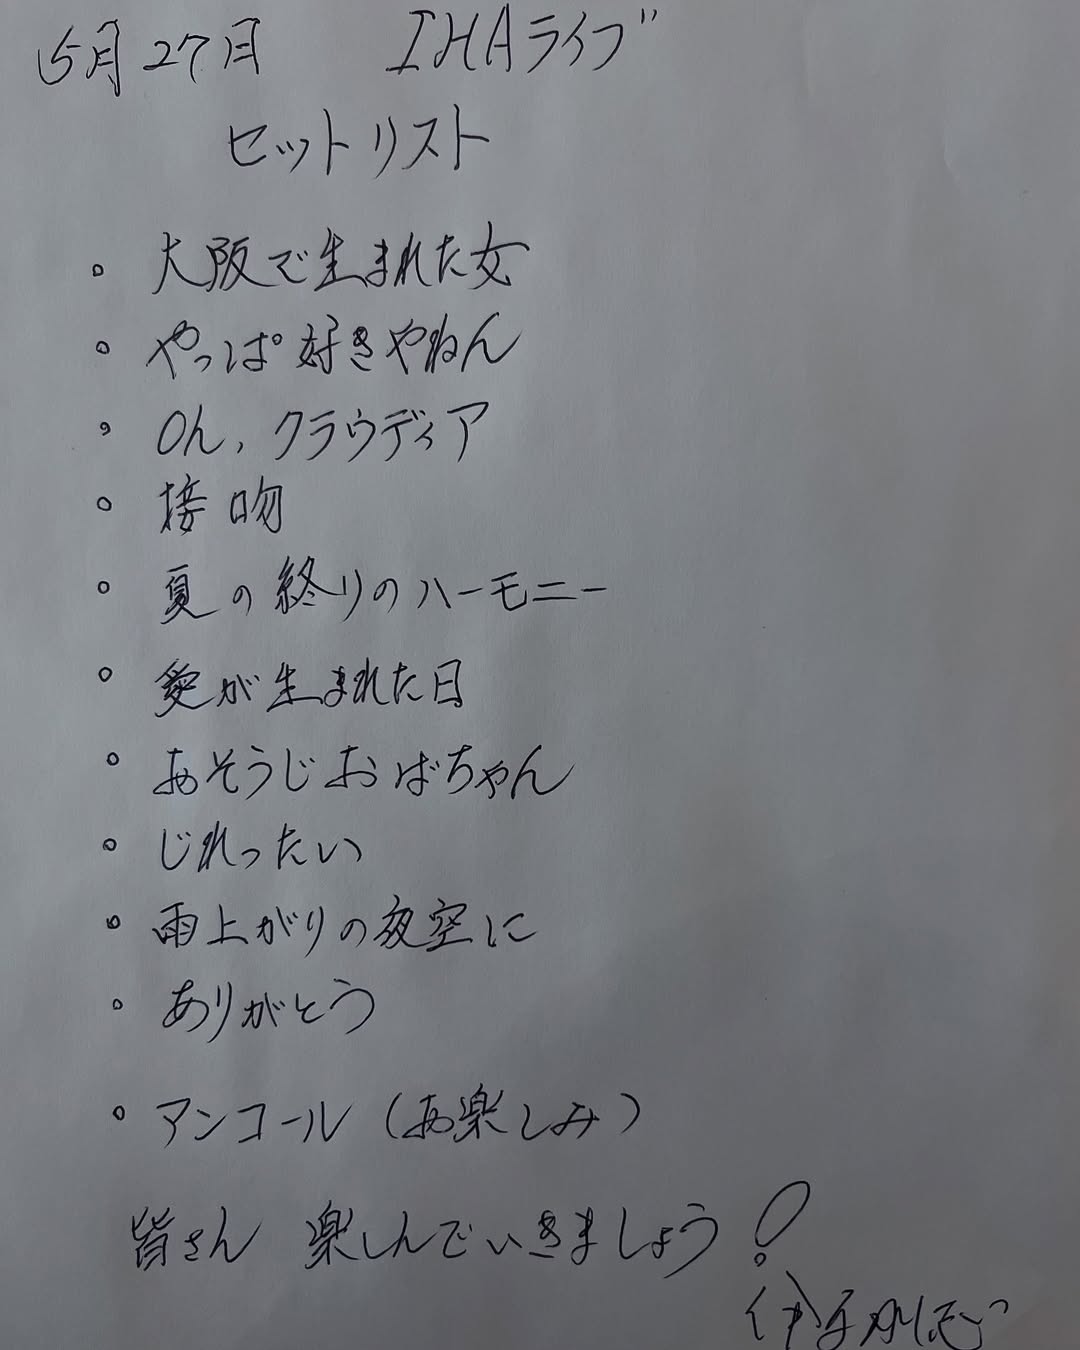 5月27日 IHAライブ
セットリスト
。大阪で生まれた女
。やっぱ好きやねん
。Oh、クラウディア
。接吻
。夏の終りのハーモニー
。愛が生まれた日
。おそうじおばちゃん
。じれったい
。雨上がりの夜空に
。ありがとう
。アンコール(お楽しみ)
皆さん 楽しんでいきましょう!